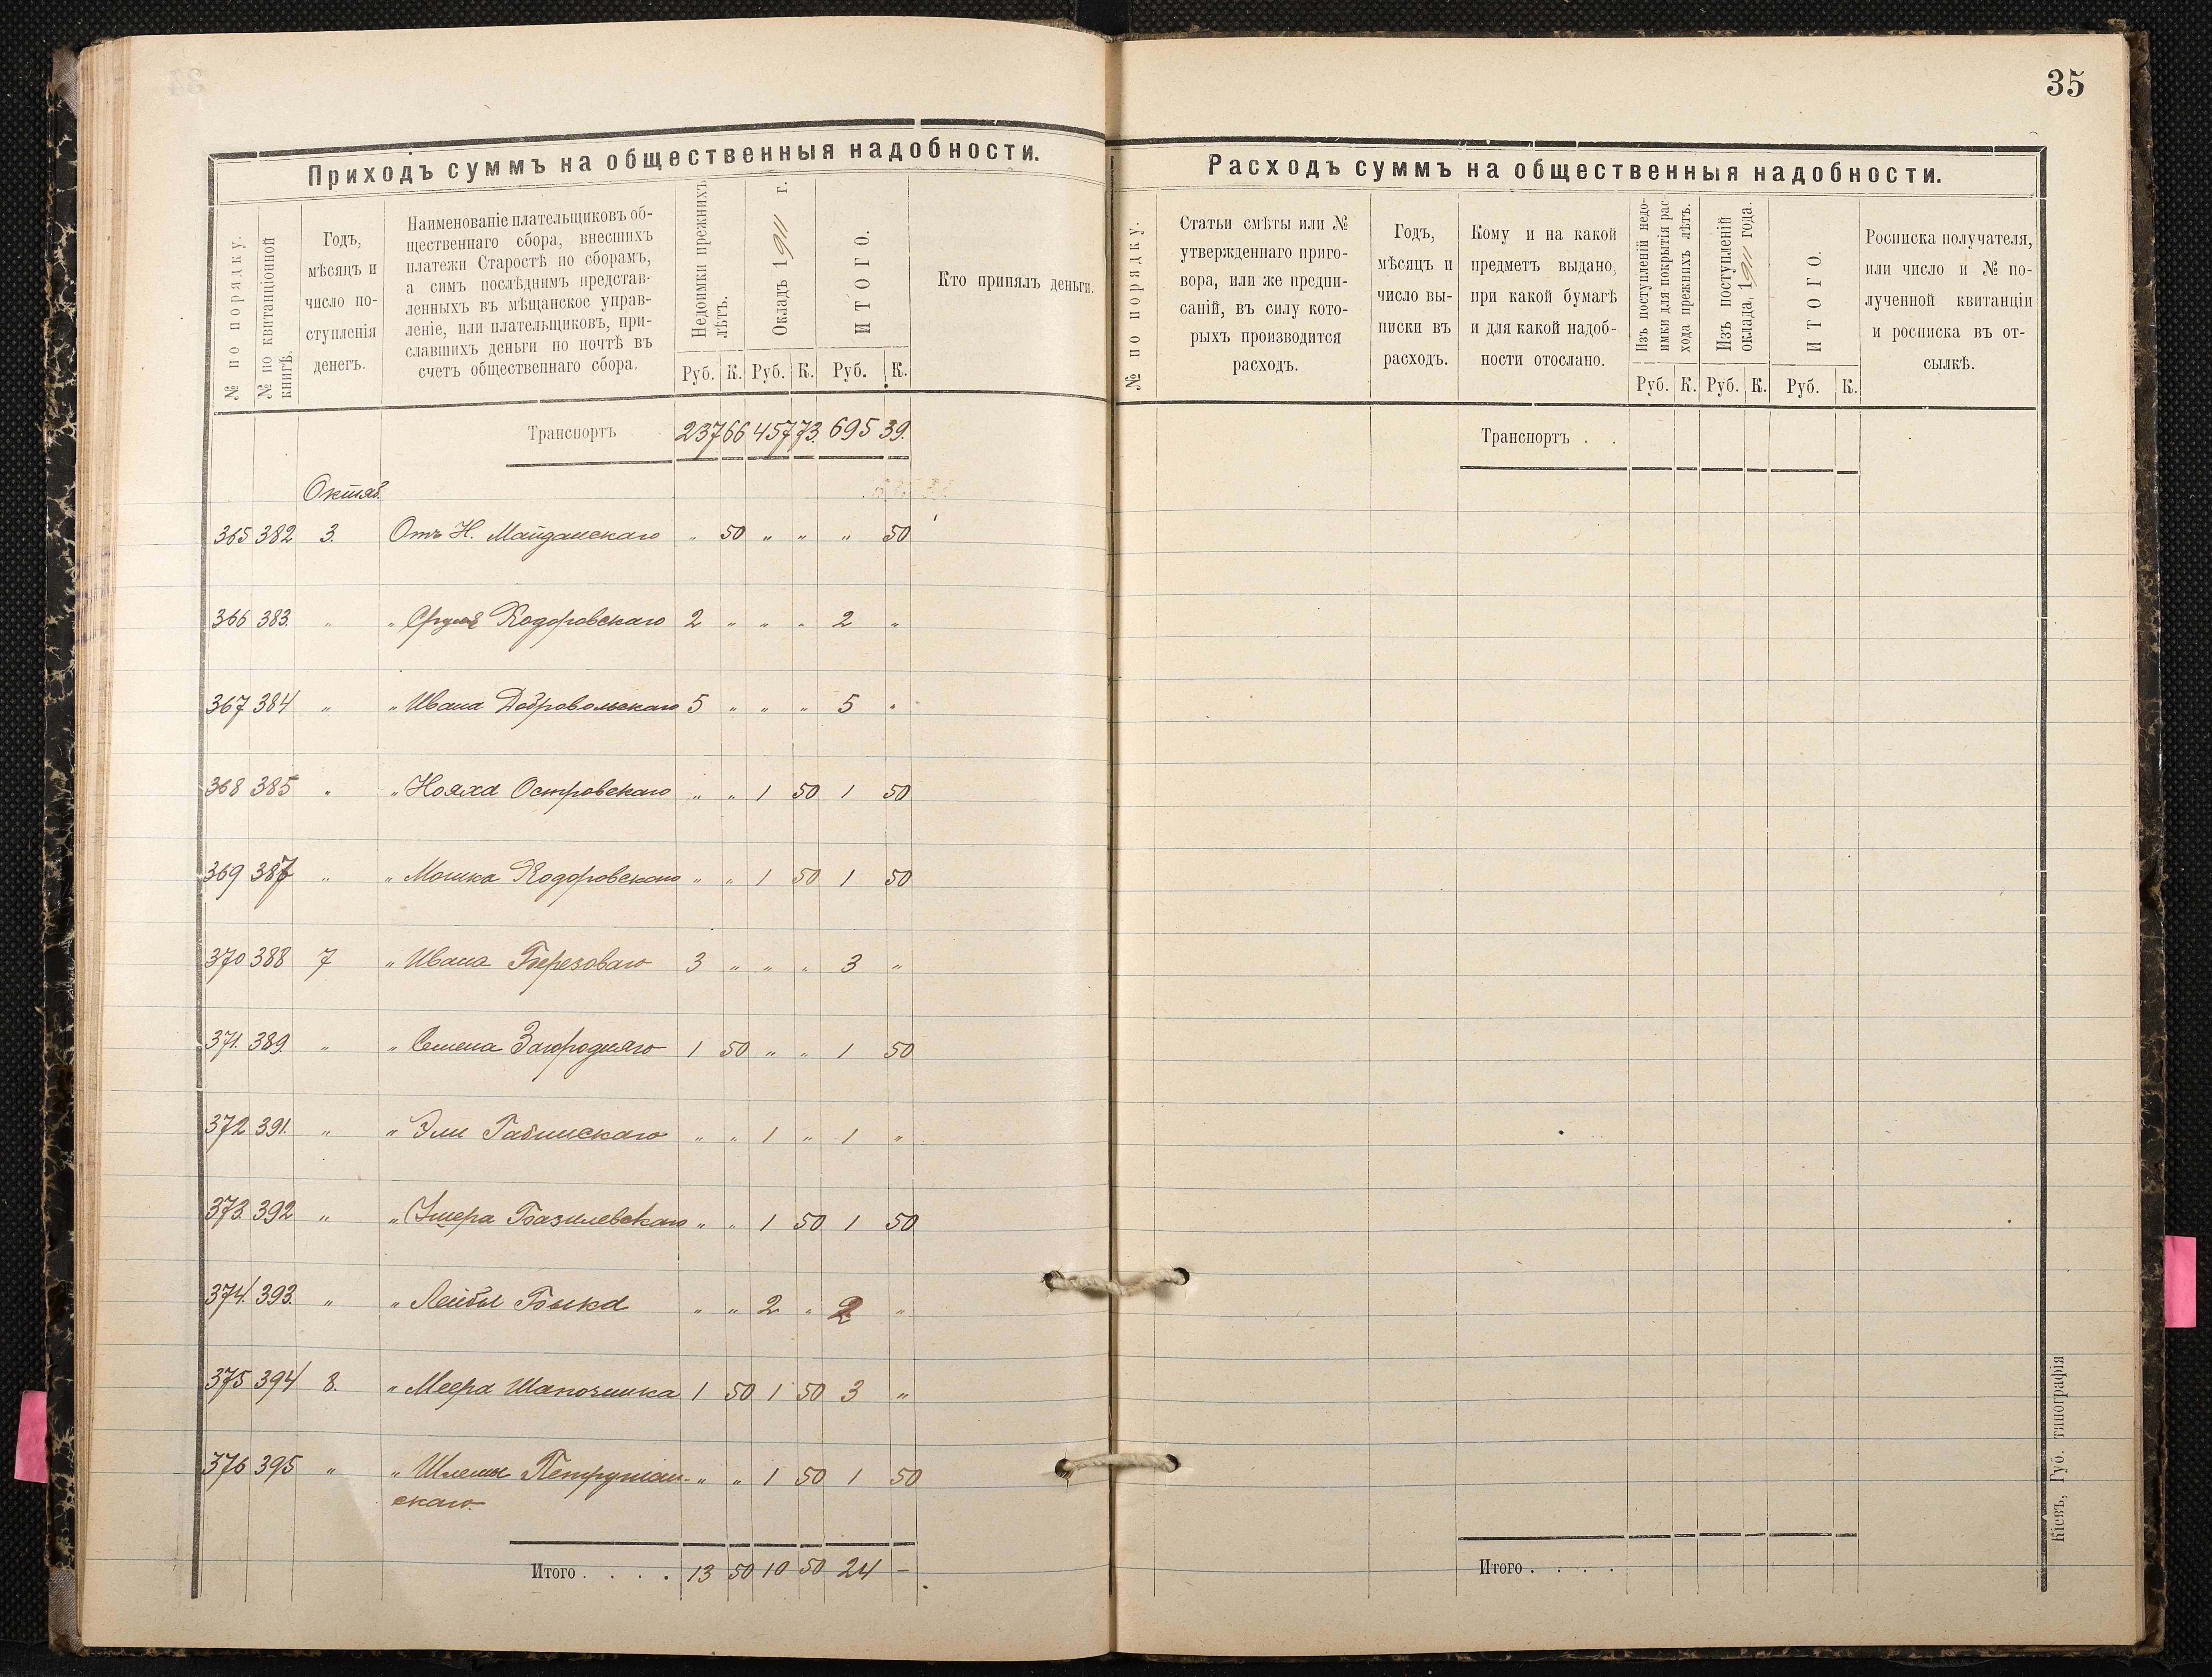 35
Приходъ суммъ на общественныя надобности.
№ по порядку.
№ по квитанціонной
книгѣ.
Годъ,
мѣсяцъ и
число по-
ступленія
денегъ.
Наименованіе плательщиковъ об-
щественнаго сбора, внесшихъ
платежи Старостѣ по сборамъ,
а симъ послѣднимъ представ-
ленныхъ въ мѣщанское управ-
леніе, или плательщиковъ, при-
славшихъ деньги по почтѣ въ
счетъ общественнаго сбора.
Недоимки прежнихъ
лѣтъ.
Окладъ 1911 г.
ИТОГО.
Кто принялъ деньги.
Руб. К. Руб. К. Руб. К.
Транспортъ 237 66 457 73. 695 39.
Октяб.
365 382 3. Отъ Н. Майданскаго " 50 " " " 50
366 383. " " Сруля Ходоровскаго 2 " " " 2 "
367 384 " " Ивана Добровольскаго 5 " " " 5 "
368 385 " " Нояха Островскаго " " 1 50 1 50
369 387 " " Мошка Ходоровскаго " " 1 50 1 50
370 388 7 " Ивана Березоваго 3 " " " 3 "
371. 389. " " Семена Загородняго 1 50 " " 1 50
372 391. " " Эли Габинскаго " " 1 " 1 "
373. 392 " " Ушера Базилевскаго " " 1 50 1 50
374. 393. " " Лейбы Быка " " 2 " 2 "
375 394 8. " Меера Шапочника 1 50 1 50 3 "
376 395 " " Шлемы Петрушан- " " 1 50 1 50
скаго.
Итого . . . . 13 50 10 50 24 –
Расходъ суммъ на общественныя надобности.
№ по порядку.
Статьи смѣты или №
утвержденнаго приго-
вора, или же предпи-
саній, въ силу кото-
рыхъ производится
расходъ.
Годъ,
мѣсяцъ и
число вы-
писки въ
расходъ.
Кому и на какой
предметъ выдано,
при какой бумагѣ
и для какой надоб-
ности отослано.
Изъ поступленій недо-
имки для покрытія рас-
хода прежнихъ лѣтъ.
Изъ поступленій
оклада, 1911 года.
ИТОГО.
Росписка получателя,
или число и № по-
лученной квитанціи
и росписка въ от-
сылкѣ.
Руб. К. Руб. К. Руб. К.
Транспортъ . .
Итого . . . .
Кіевъ, Губ. типографія